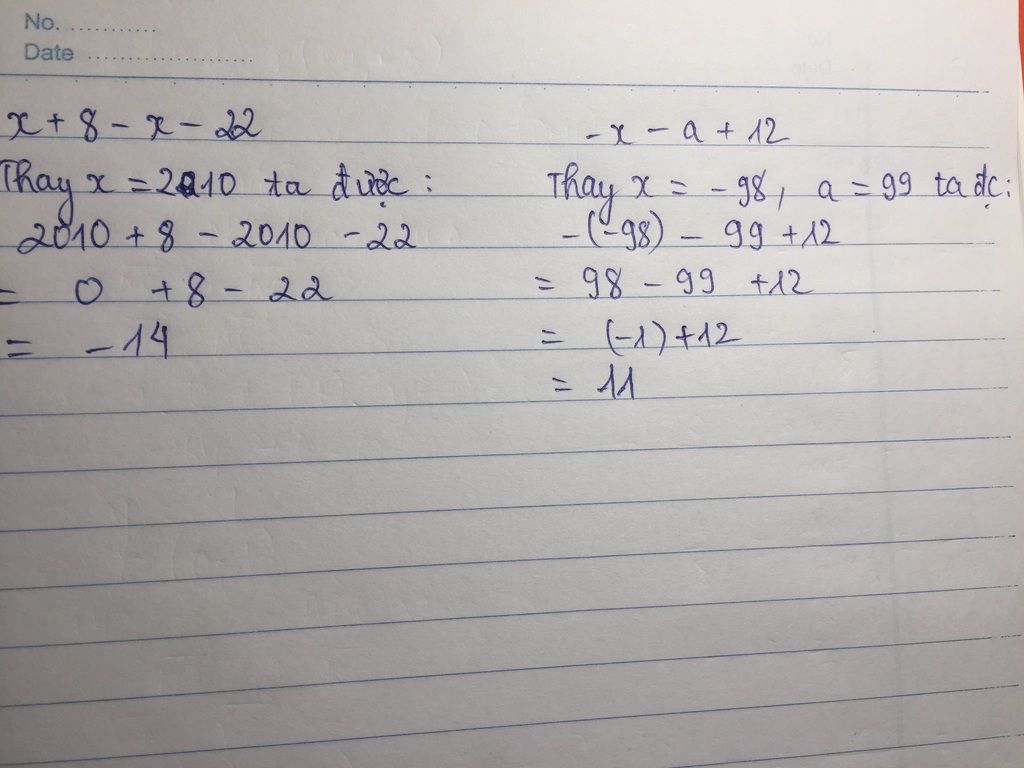 No. ...........
Date .....................
x + 8 - x - 22
Thay x = 2010 ta được :
2010 + 8 - 2010 - 22
= 0 + 8 - 22
= - 14
- x - a + 12
Thay x = - 98, a = 99 ta đc :
- (-98) - 99 + 12
= 98 - 99 + 12
= (-1) + 12
= 11